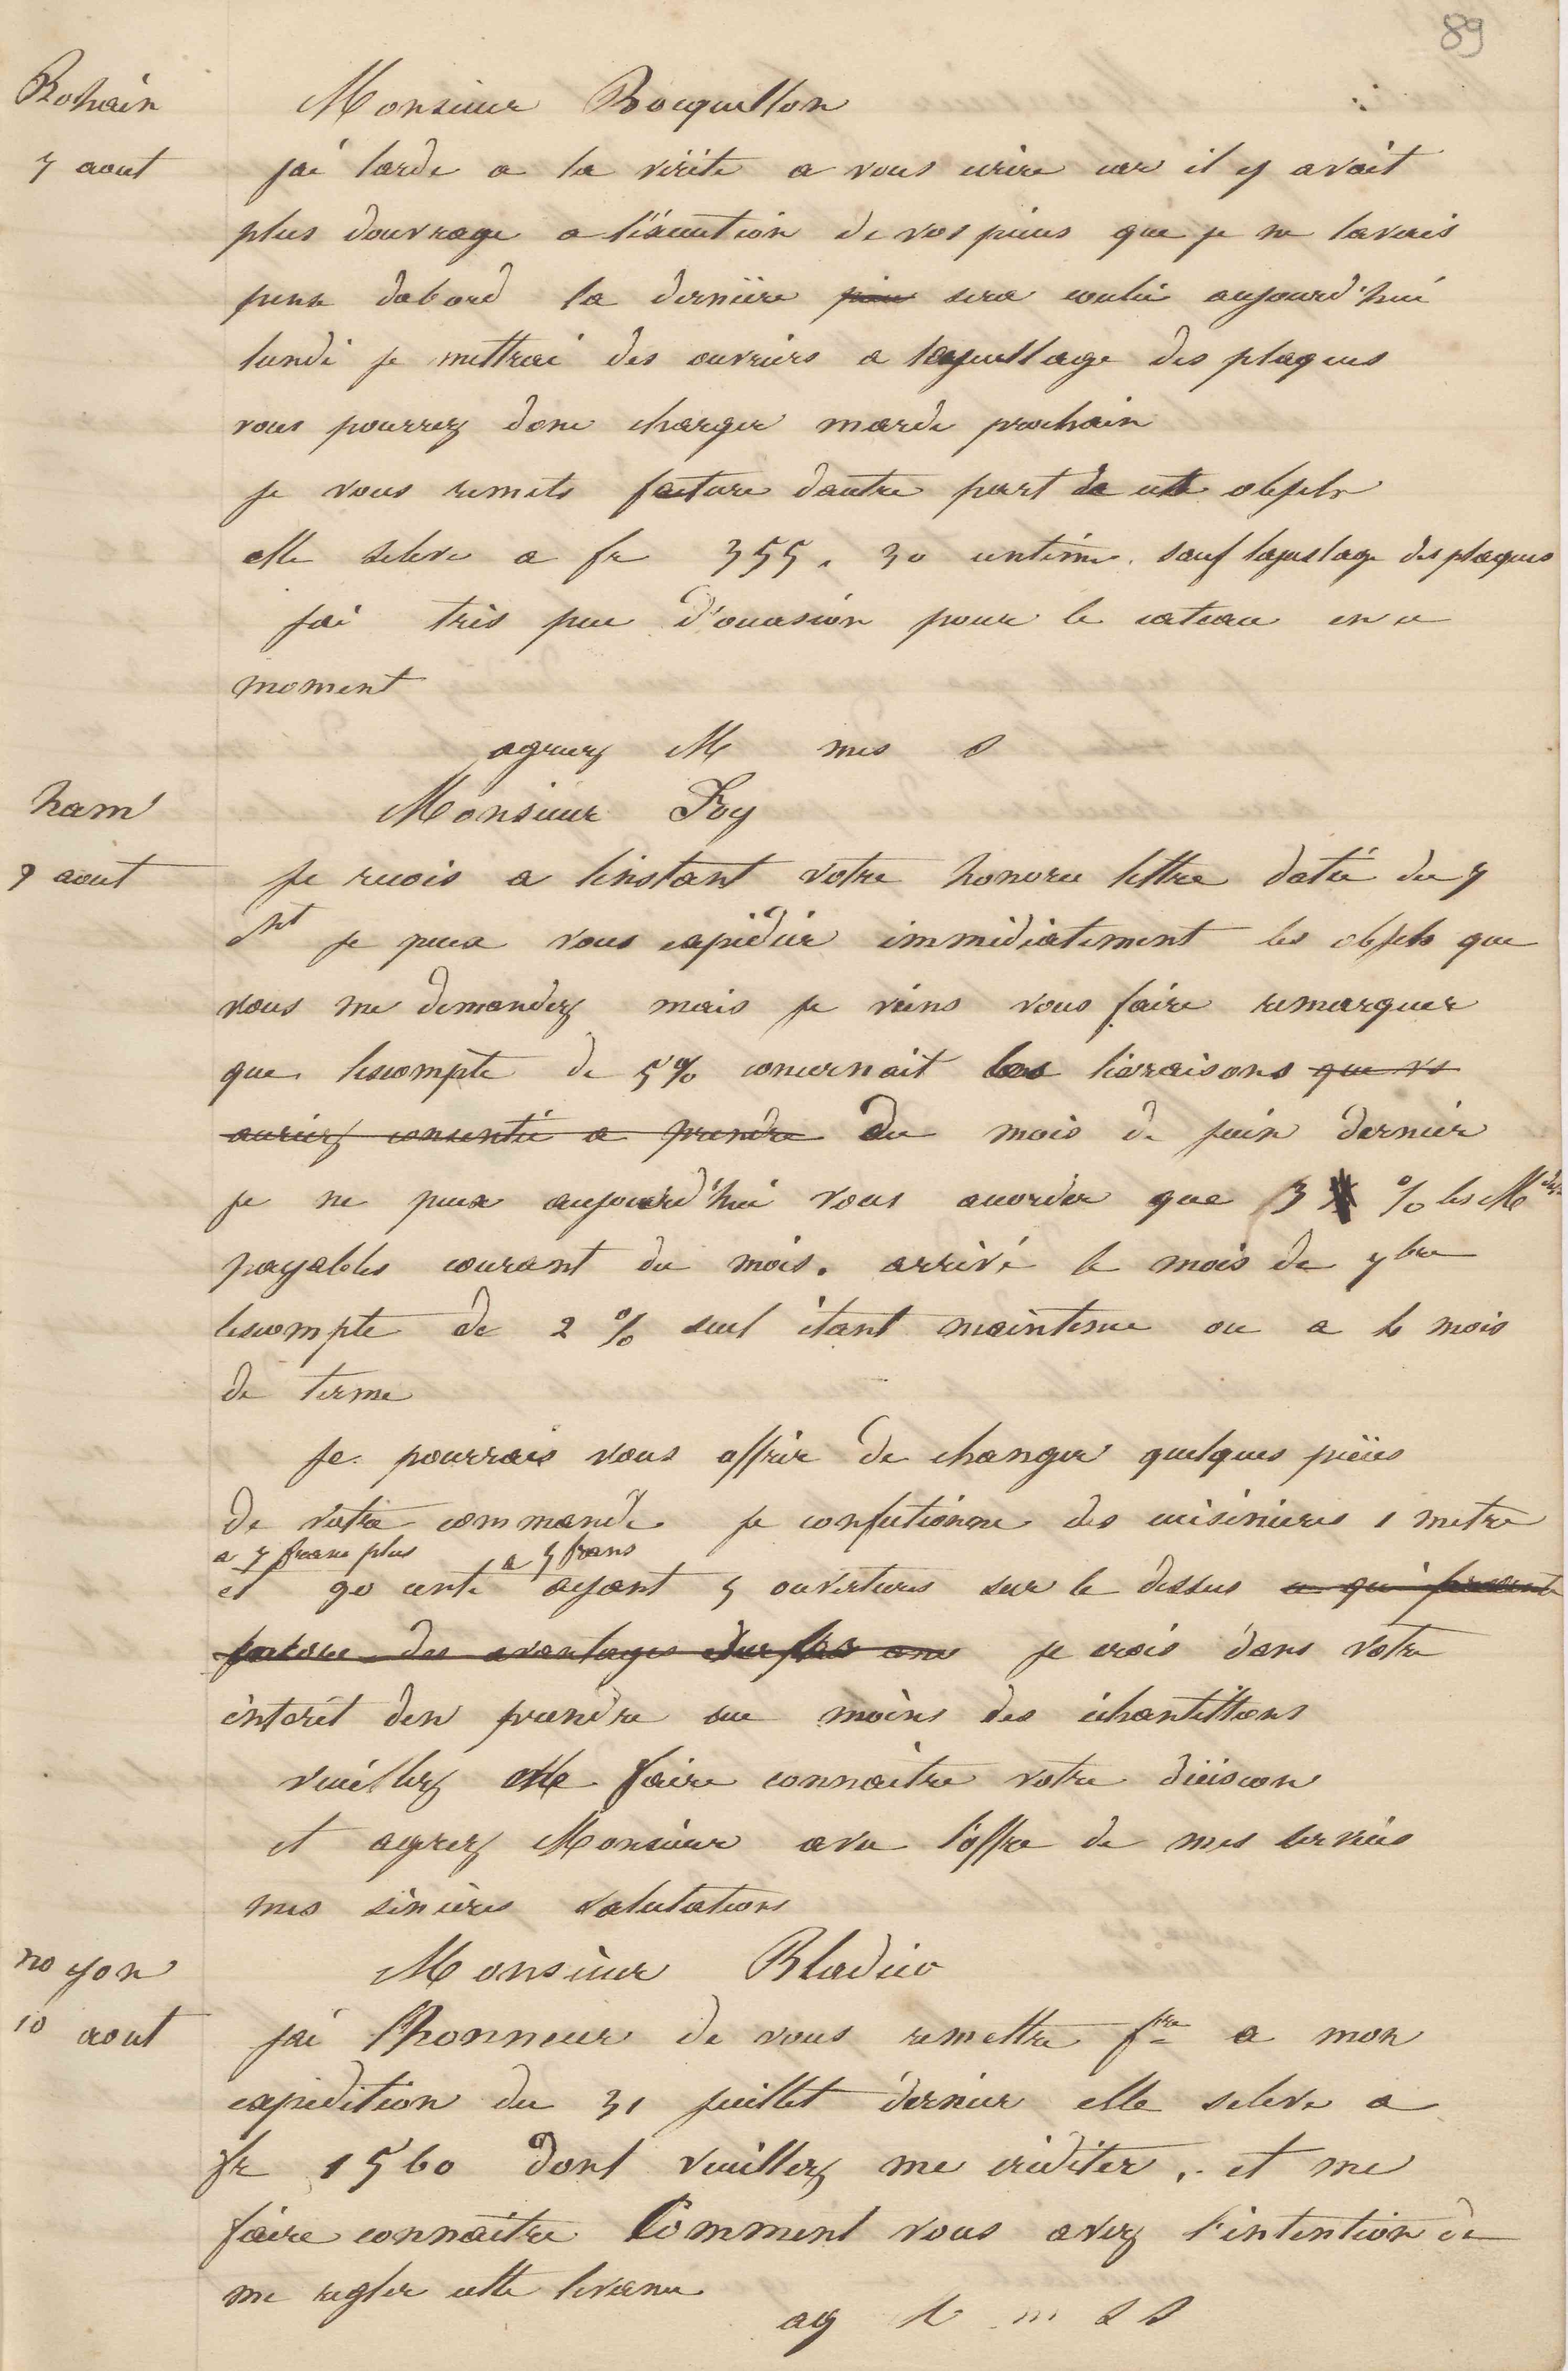 89
Bohain
Monsieur Bocquillon
7 aout
jai tarde a la vérite a vous ecrire car il y avait
plus douvrage a léxecution de vos pieces que je ne lavais
pense dabord la derniére piece sera coulée aujourd'hui
lundi je mettrai des ouvriers a lajustage des plaques
vous pourrez donc charger mardi prochain
je vous remets facture dautre part de ces objets
elle seleve a fr 355 . 30 centime . sauf lajustage des plaques
jai très peu d'occasion pour le cateau en ce
moment
agreez M mes S
ham
Monsieur Foy
9 aout
je recois a linstant votre honoree lettre datée du 7
ct je peux vous expédier immédiatement les objets que
vous me demandez mais je viens vous faire remarquer
que lescompte de 5% concernait les livraisons que vs
auriez consentie a prendre du mois de juin dernier
je ne peux aujourd'hui vous accorder que 3 % les Mdises
payables courant du mois . arrivé le mois de 7bre
lescompte de 2 % seul étant maintenue ou a 6 mois
de terme
je pourrais vous offrir de changer quelques pièces
de votre commande je confectionne des cuisinieres 1 metre
a 7 franc plus
a 5 frans
et 90 cent ayant 5 ouvertures sur le dessus ce qui presente
des avantages je crois dans votre
intérêt den prendre au moins des échantillons
veuillez me faire connaitre votre décision
et agreez Monsieur avec l'offre de mes services
mes sincères salutations
noyon
Monsieur Bladier
10 aout
jai l'honneur de vous remettre fre a mon
expedition du 31 juillet dernier elle seleve a
fr 1560 dont veuillez me créditer . et me
faire connaitre Comment vous avez l'intention de
me regler cette
ag M m S S